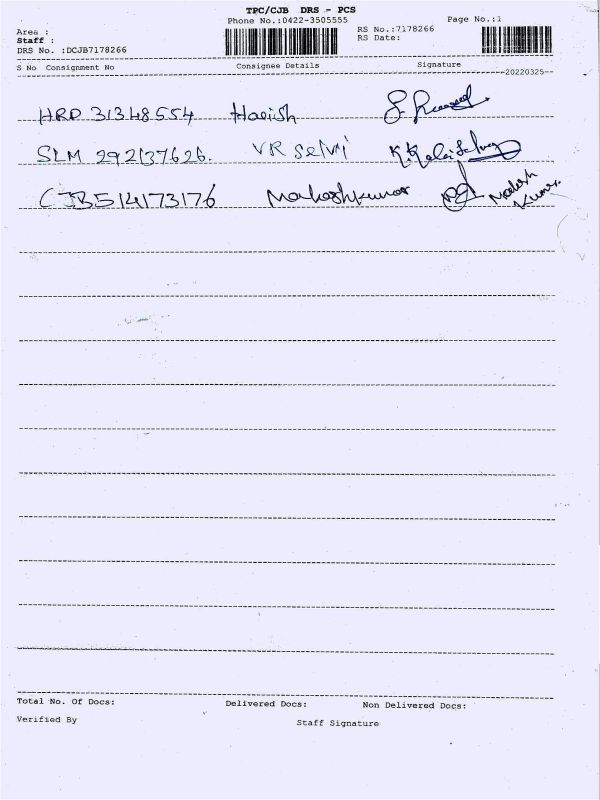 TPC/CJB DRS - PCS
Phone No.:0422-3505555 Page No.:1
Area :
Staff : RS No.:7178266
DRS No. :DCJB7178266 RS Date:
S No Consignment No Consignee Details Signature
--20220325--
HRD 31348554 Harish
SLM 292137626. VR selvi K.Kalai Selvy
CJB514173176 Maheshkumar Mahesh
Kumar.
Total No. Of Docs: Delivered Docs: Non Delivered Docs:
Verified By Staff Signature